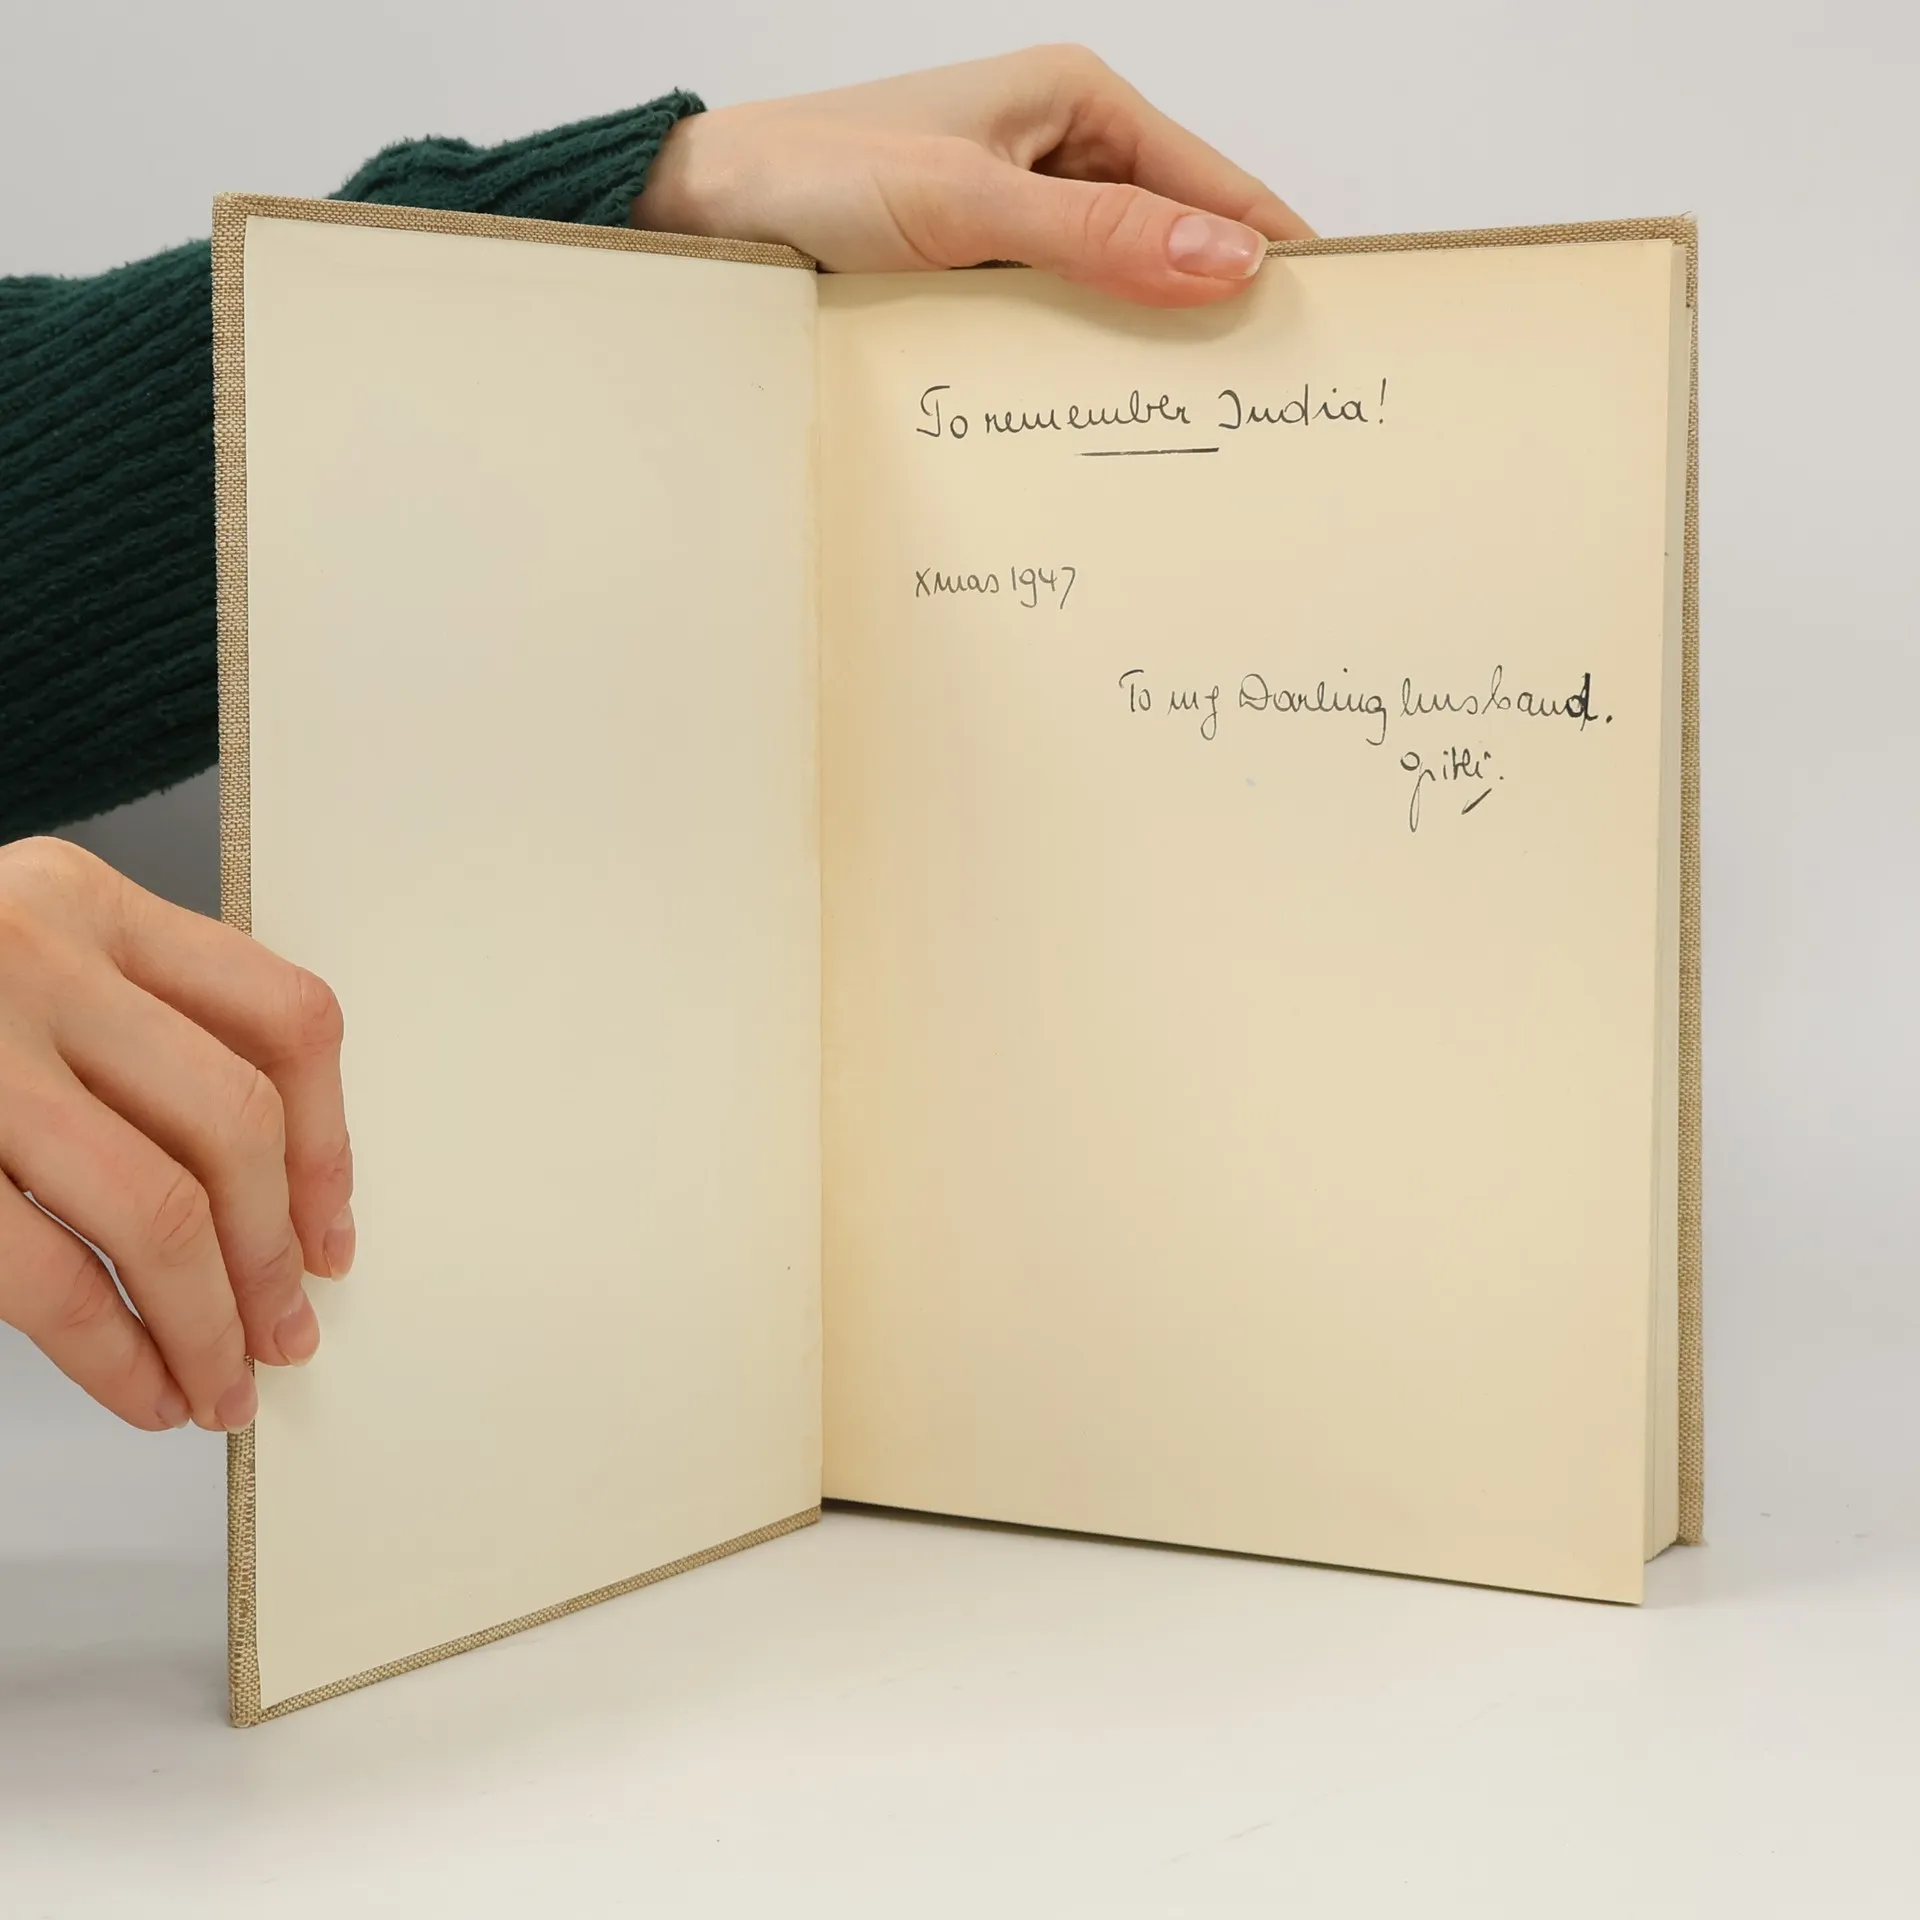 To remember India!
Xmas 1947
To my Darling husband.